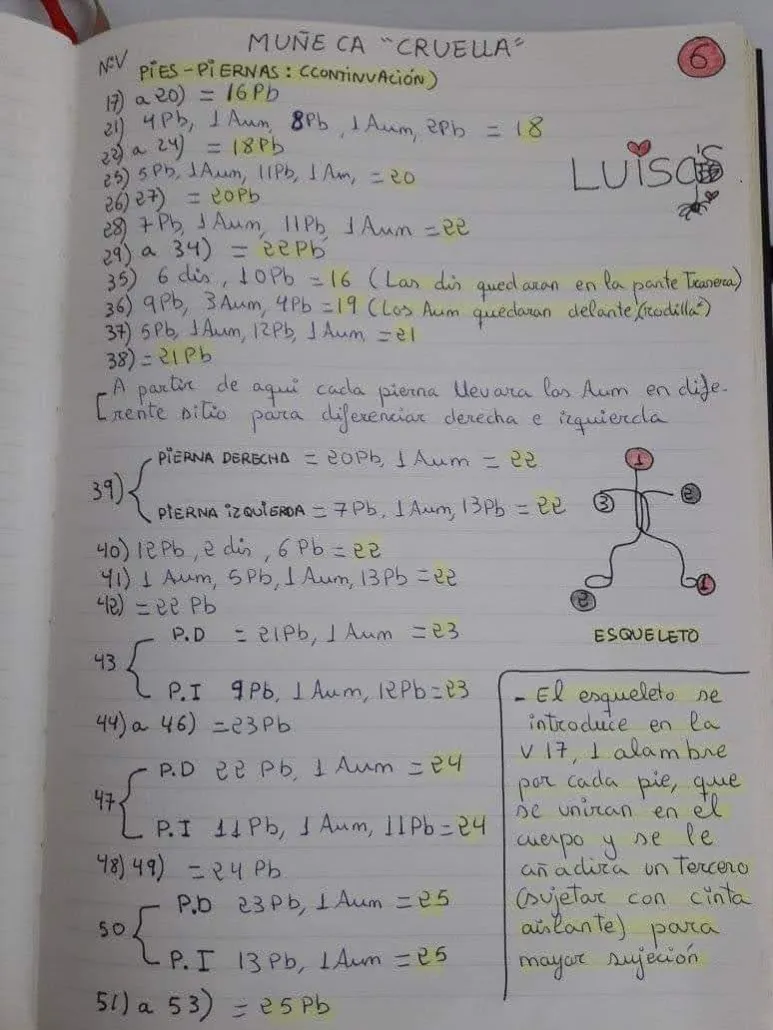 MUÑECA "CRUELLA"
6
NºV PIES-PIERNAS: (CONTINUACIÓN)
17) a 20) = 16Pb
21) 4Pb, 1 Aum, 8Pb, 1 Aum, 2Pb = 18
22) a 24) = 18Pb
25) 5Pb, 1 Aum, 11Pb, 1 Am, = 20
26) 27) = 20Pb
28) 7Pb, 1 Aum, 11Pb, 1 Aum = 22
29) a 34) = 22Pb
35) 6 dis, 10Pb = 16 (Las dis quedaran en la parte Trasera)
36) 9Pb, 3 Aum, 4Pb = 19 (Los Aum quedaran delante (rodilla)
37) 5Pb, 1 Aum, 12Pb, 1 Aum = 21
38) = 21Pb
A partir de aqui cada pierna llevara los Aum en dife-
rente sitio para diferenciar derecha e izquierda
39) PIERNA DERECHA = 20Pb, 1 Aum = 22
PIERNA IZQUIERDA = 7Pb, 1 Aum, 13Pb = 22
40) 12Pb, 2 dis, 6 Pb = 22
41) 1 Aum, 5Pb, 1 Aum, 13Pb = 22
42) = 22 Pb
43 P.D = 21Pb, 1 Aum = 23
P.I 9Pb, 1 Aum, 12Pb = 23
44) a 46) = 23Pb
47 P.D 22 Pb, 1 Aum = 24
P.I 11Pb, 1 Aum, 11Pb = 24
48) 49) = 24 Pb
50 P.D 23Pb, 1 Aum = 25
P.I 13Pb, 1 Aum = 25
51) a 53) = 25Pb
LUISA'S
1
3
2
2
1
ESQUELETO
- El esqueleto se
introduce en la
V 17, 1 alambre
por cada pie, que
se uniran en el
cuerpo y se le
añadira un Tercero
(sujetar con cinta
aislante) para
mayor sujeción